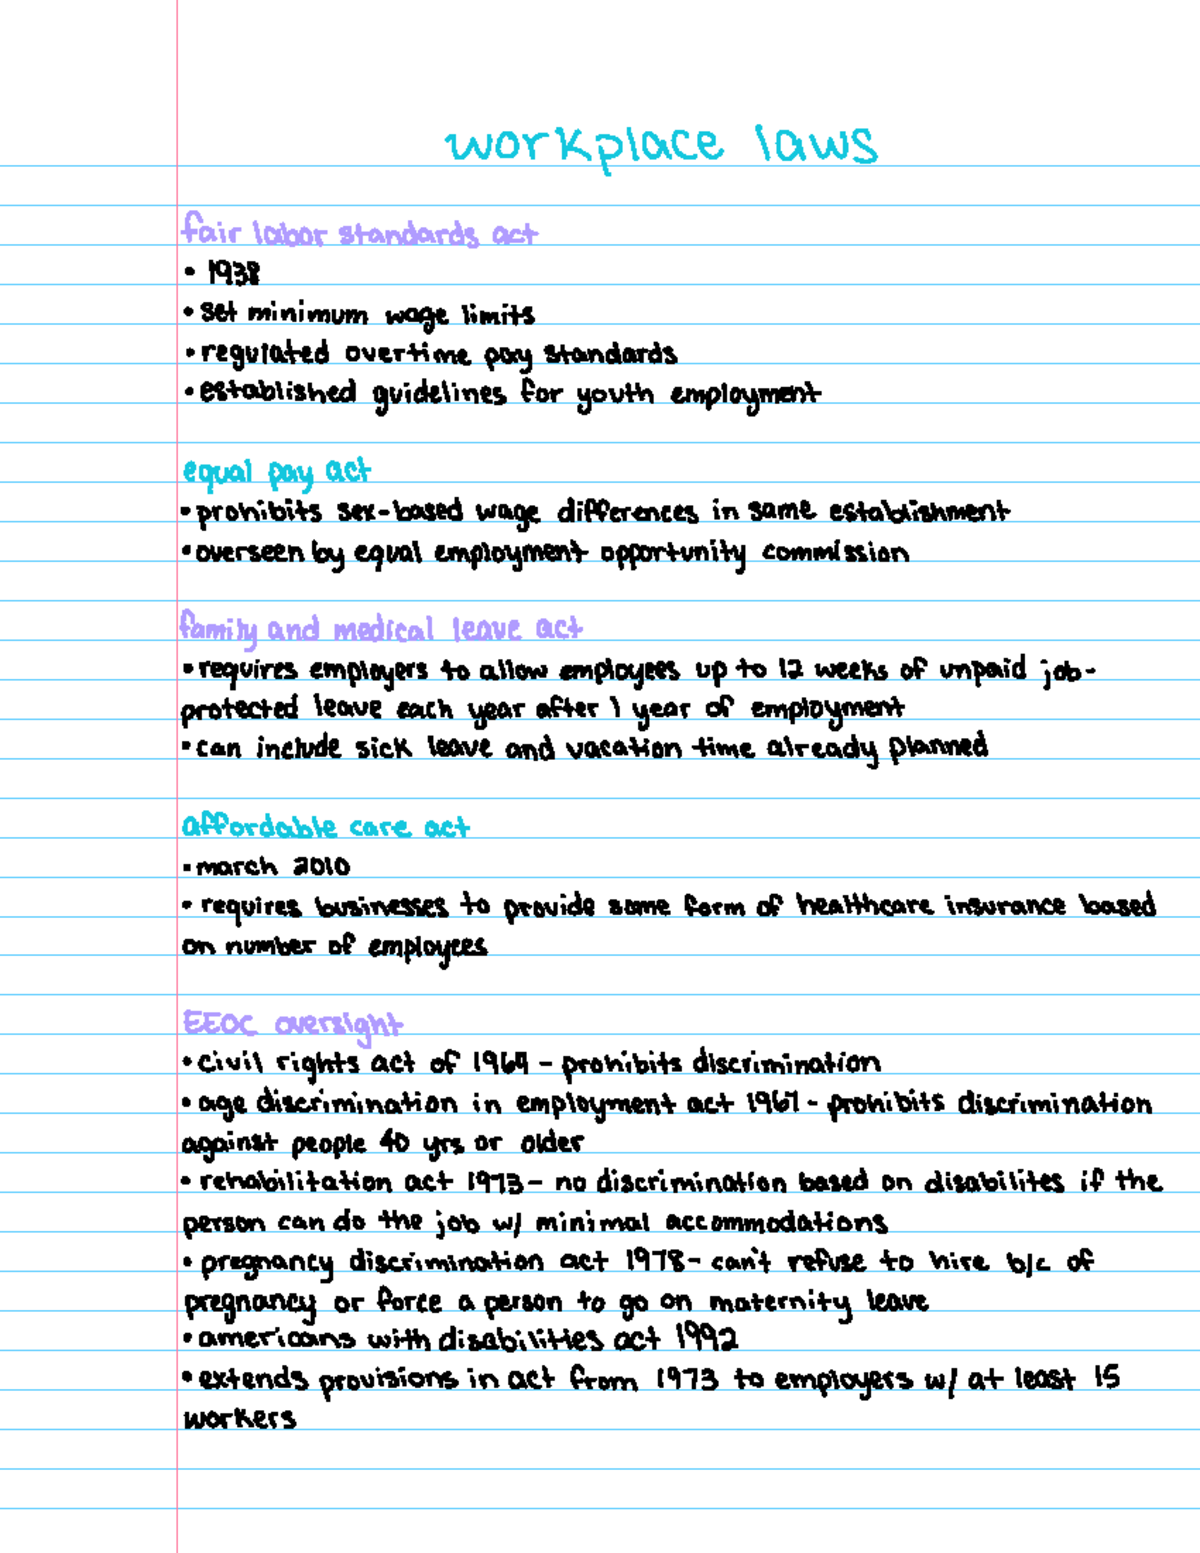 workplace laws
fair labor standards act
• 1938
• set minimum wage limits
• regulated overtime pay standards
• established guidelines for youth employment
equal pay act
• prohibits sex-based wage differences in same establishment
• overseen by equal employment opportunity commission
family and medical leave act
• requires employers to allow employees up to 12 weeks of unpaid job-
protected leave each year after 1 year of employment
• can include sick leave and vacation time already planned
affordable care act
• march 2010
• requires businesses to provide some form of healthcare insurance based
on number of employees
EEOC oversight
• civil rights act of 1964 - prohibits discrimination
• age discrimination in employment act 1967 - prohibits discrimination
against people 40 yrs or older
• rehabilitation act 1973 - no discrimination based on disabilites if the
person can do the job w/ minimal accommodations
• pregnancy discrimination act 1978 - can't refuse to hire b/c of
pregnancy or force a person to go on maternity leave
• americans with disabilities act 1992
• extends provisions in act from 1973 to employers w/ at least 15
workers